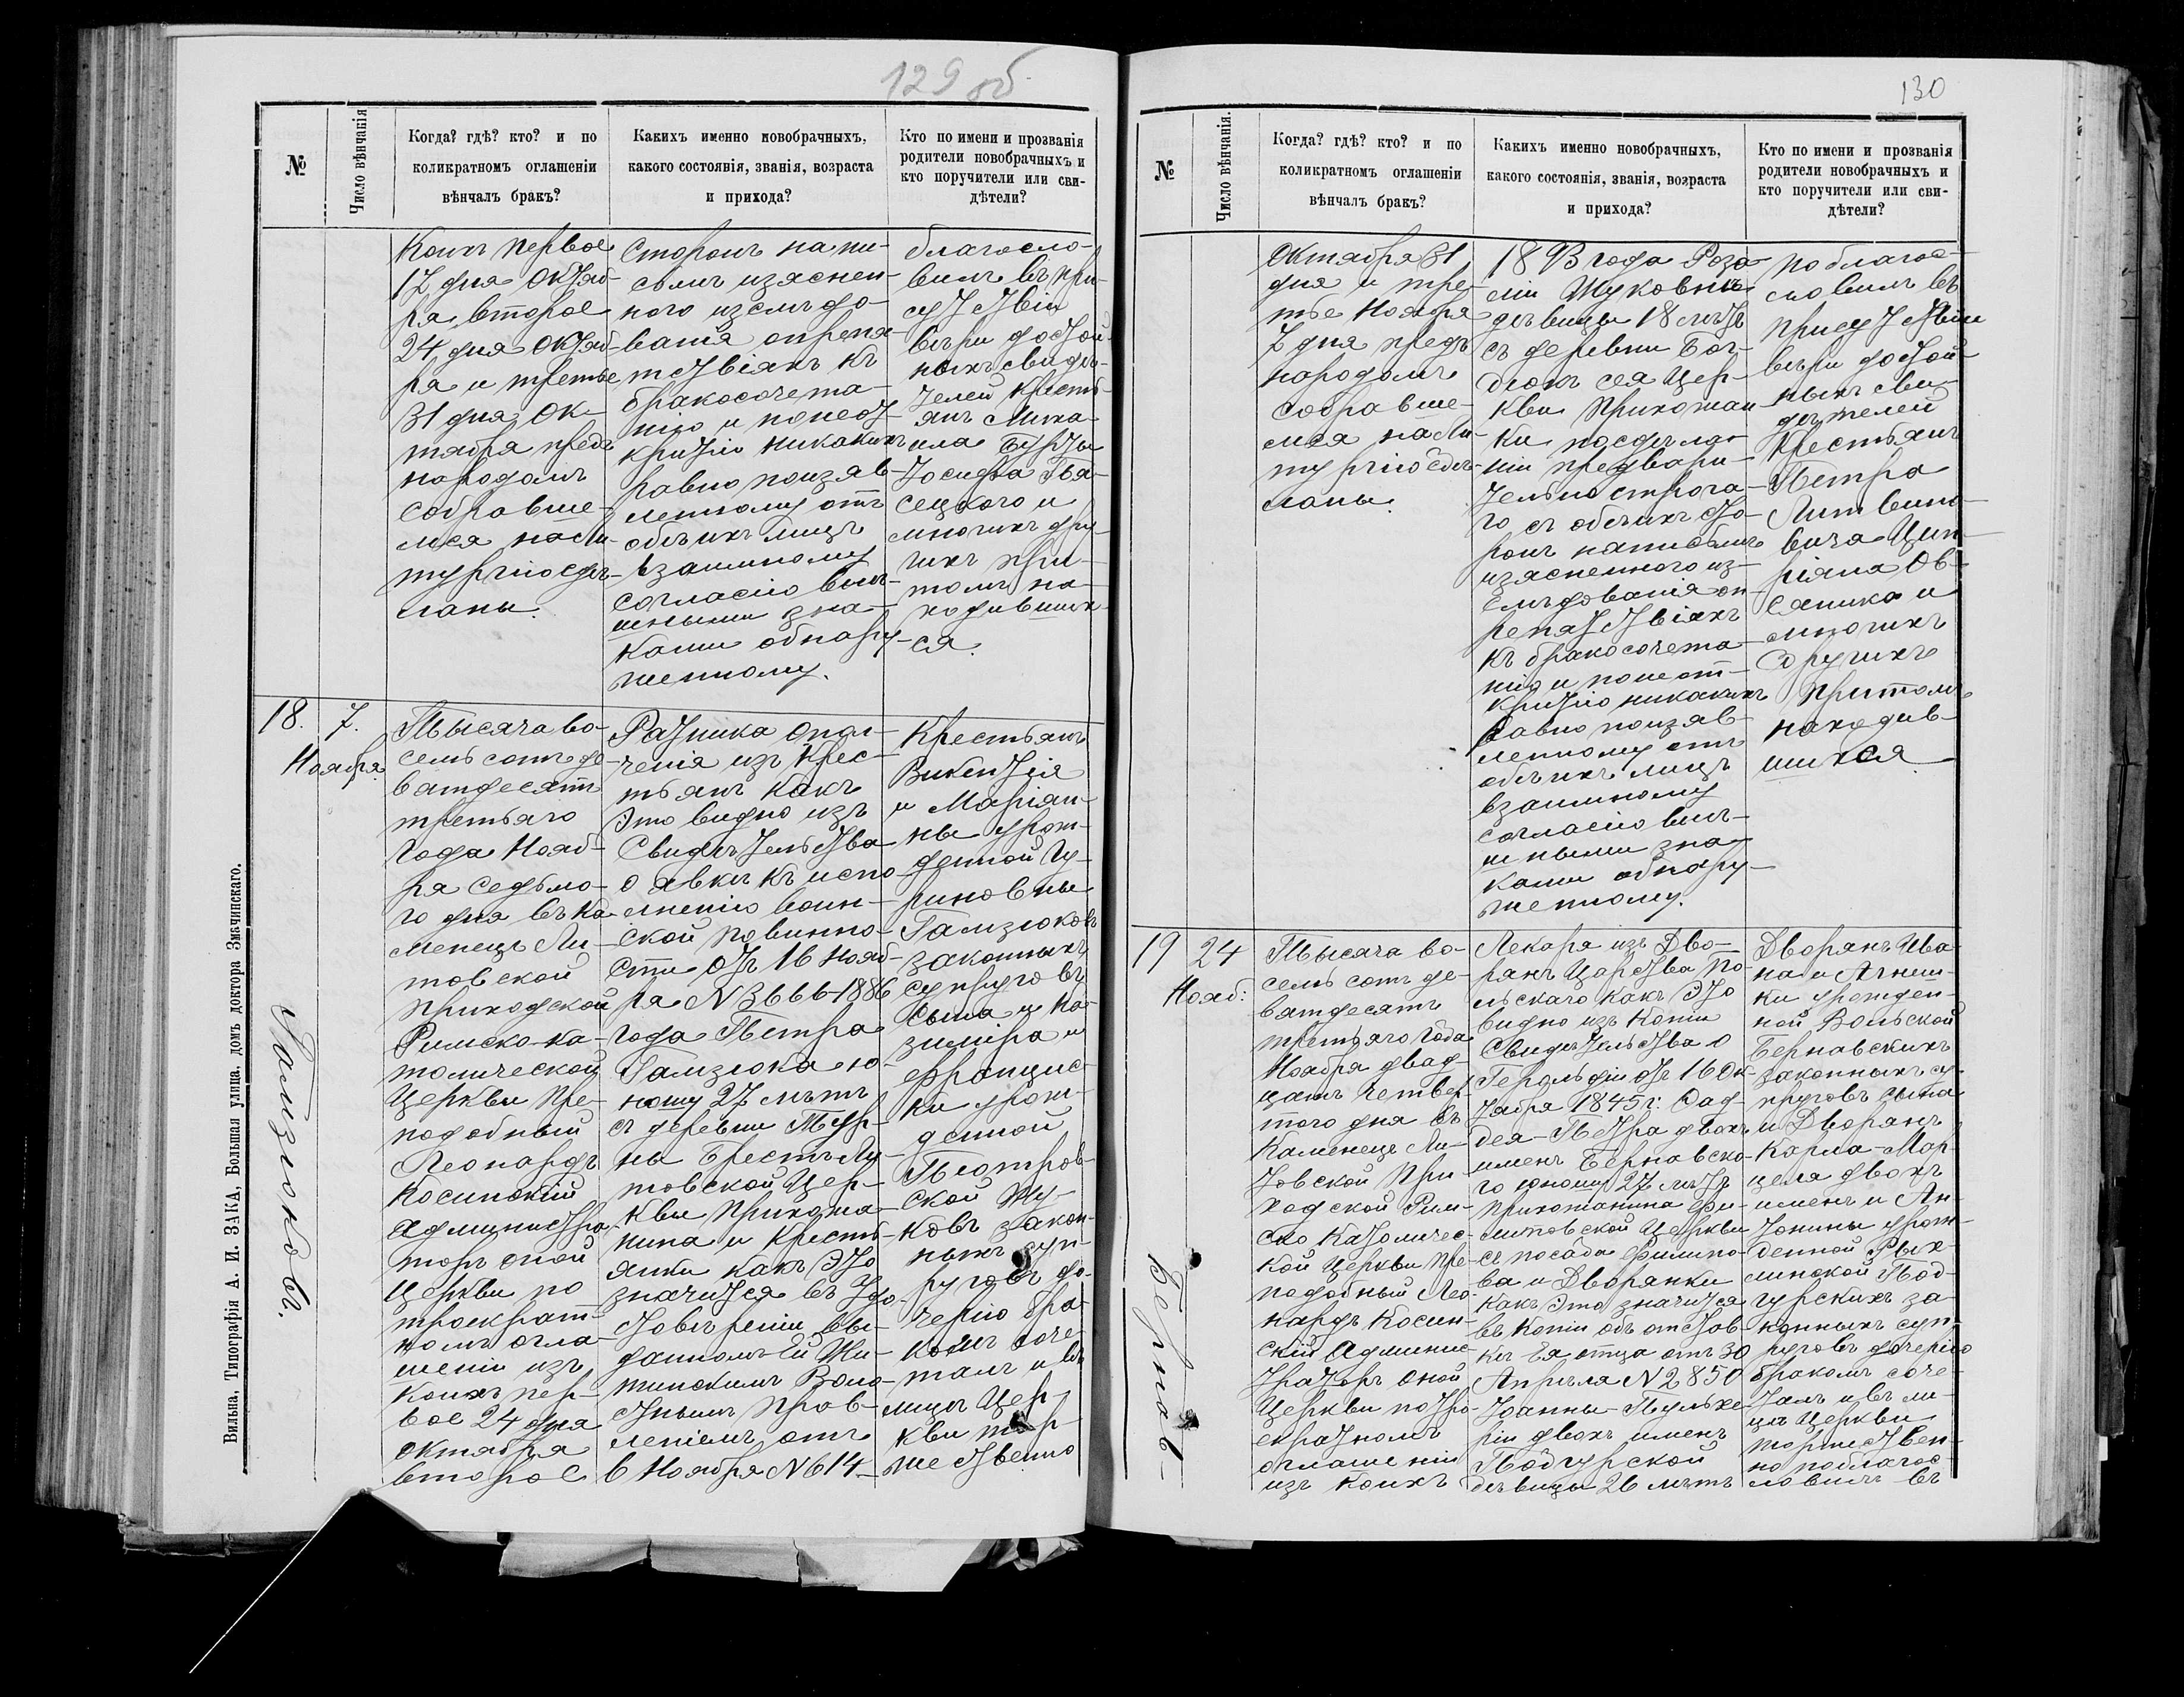 129 об
№
Число вѣнчанія
Когда? гдѣ? кто? и по
коликратномъ оглашеніи
вѣнчалъ бракъ?
Какихъ именно новобрачныхъ,
какого состоянія, званія, возраста
и прихода?
Кто по имени и прозванія
родители новобрачныхъ и
кто поручители или сви-
дѣтели?
Коихъ первое
17 дня Октяб-
ря, второе
24 дня Октяб-
ря и третье
31 дня Ок-
тября предъ
народомъ
собравше-
мся на Ли-
тургію сдѣ-
ланы.
Сторонъ на пи-
сьмѣ изяснен-
ного изслѣдо-
ванія о препя-
тствіяхъ къ
бракосочета-
нію и понеот-
крытію никакихъ
равно поизяв-
ленному отъ
обѣихъ лицъ
взаимному
согласію внѣ-
шными зна-
ками обнару-
женному.
благосло-
вилъ въ при-
сутствіи
вѣри достой-
ныхъ свидѣ-
телей Кресть-
янъ Миха-
ила Бурды
Іосифа Пя-
сецкого и
многихъ дру-
гихъ при-
томъ на-
ходившихъ-
ся.
18.
7.
Ноября
Тысяча во-
семь сотъ де-
вятдесятъ
третьяго
Года Нояб-
ря седьмо-
го дня въ Ка-
менецъ Ли-
товской
приходской
Римско-ка-
толической
Церкви Пре-
подобный
Леонардъ
Косинскій
Администра-
торъ оной
Церкви по
троекрат-
номъ огла-
шеніи изъ
коихъ пер-
вое 24 дня
Октября
второе
Ратника опол-
ченія изъ Крес-
тьянъ какъ
Это видно изъ
Свидѣтельства
о явкѣ къ испо-
лненію воин-
ской повинно-
сти отъ 16 Нояб-
ря N 3666-1886
года Петра
Гамзюка ю-
ношу 27 лѣтъ
съ деревни Тур-
ны Брестъ Ли-
товской Цер-
кви прихожа-
нина и Кресть-
янки какъ Это
значится въ Удо-
стовѣреніи вы-
данномъ Ей Жи-
тинскимъ Воло-
стнымъ Прав-
леніемъ отъ
6 Ноября N 614-
Крестьянъ
Викентія
и Маріян-
ны урож-
денной Гу-
риновны
Гамзюковъ
законныхъ
супруговъ
сына и Ка-
зиміра и
Францис-
ки урож-
денной
Піотров-
ской Жу-
ковъ закон-
ныхъ суп-
руговъ до-
черію бра-
комъ соче-
талъ и въ
лицѣ Цер-
кви тор-
жественно
Гамзюковъ.
Вильна, Типографія А. И. ЗАКА, Большая улица, домъ доктора Змачинскаго.
130
№
Число вѣнчанія.
Когда? гдѣ? кто? и по
коликратномъ оглашеніи
вѣнчалъ бракъ?
Какихъ именно новобрачныхъ,
какого состоянія, званія, возраста
и прихода?
Кто по имени и прозванія
родители новобрачныхъ и
кто поручители или сви-
дѣтели?
Октября 31
дня и тре-
тье Ноября
7 дня предъ
народомъ
собравше-
мся на Ли-
тургію сдѣ-
ланы.
1893 года Роза-
ліи Жуковны
дѣвицы 18 лѣтъ
съ деревни
сея Цер-
кви Прихожан-
ки посдѣла-
ніи предвари-
тельно строга-
го съ обѣихъ сто-
ронъ написьмѣ
изясненного из-
слѣдованія о п-
репятствіяхъ
къ бракосочета-
нію и понеот-
крытію никакихъ
Равно поизяв-
ленному отъ
обѣихъ лицъ
взаимному
согласію внѣ-
шными зна-
ками обнару-
женному.
поблагос-
ловилъ въ
присутствіи
вѣри достой-
ныхъ сви-
дѣтелей
Крестьянъ
Петра
Литвино-
вича Цип-
ріяна Ов-
сяника и
многихъ
другихъ
притомъ
находив-
шихся
19
24
Нояб:
Тысяча во-
семь сотъ де-
вятдесятъ
третьяго Года
Ноября двад-
цать четвер-
того дня въ
Каменецъ Ли-
товской При-
ходской Рим-
ско Католичес-
кой Церкви Пре-
подобный Лео-
нардъ Косин-
скій Админис-
траторъ оной
Церкви по тро-
екратномъ
оглашеніи
изъ коихъ
Лекаря изъ Дво-
рянъ Царства По-
льскаго какъ Это
видно изъ Копіи
Свидѣтельства о
Герольдіи отъ 16 Ок-
тября 1845 г: Фад-
дея-Петра двохъ
именъ Бернавско-
го юношу 27 лѣтъ
прихожанина Фи-
липовской Церкви
съ посада Филипо-
ва и Дворянки
какъ Это значится
въ Копіи объ отстав-
кѣ Ея отца отъ 30
Апрѣля N 2850
Іоанны-Пульхе-
ріи двохъ именъ
Подгурской
дѣвицы 26 лѣтъ
Дворянъ Ива-
на и Агнеш-
ки урожден-
ной Вольской
Бернавскихъ
законныхъ су-
пруговъ сына
и Дворянъ
Карла-Мар-
целя двохъ
именъ и Ан-
тонины урож-
денной Рых-
линской Под-
гурскихъ за-
конныхъ суп-
руговъ дочерію
бракомъ соче-
талъ и въ ли-
цѣ Церкви
торжествен-
но поблагос-
ловилъ въ
Бернав-